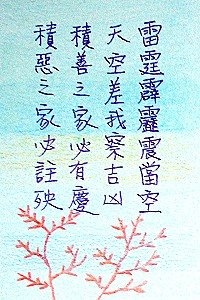 雷霆霹靂震當空
天空差我察吉凶
積善之家必有慶
積惡之家必註殃